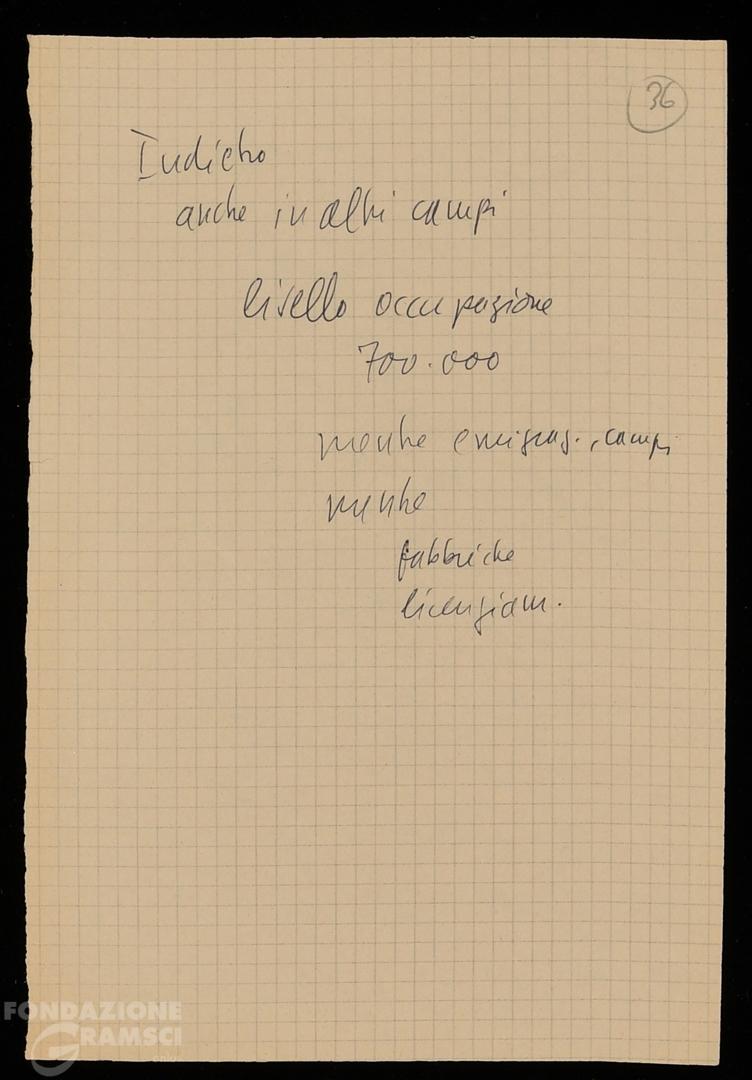 36
Indietro
anche in altri campi
livello occupazione
700.000
mentre emigraz., campi
mentre
fabbriche
licenziam.
FONDAZIONE
GRAMSCI